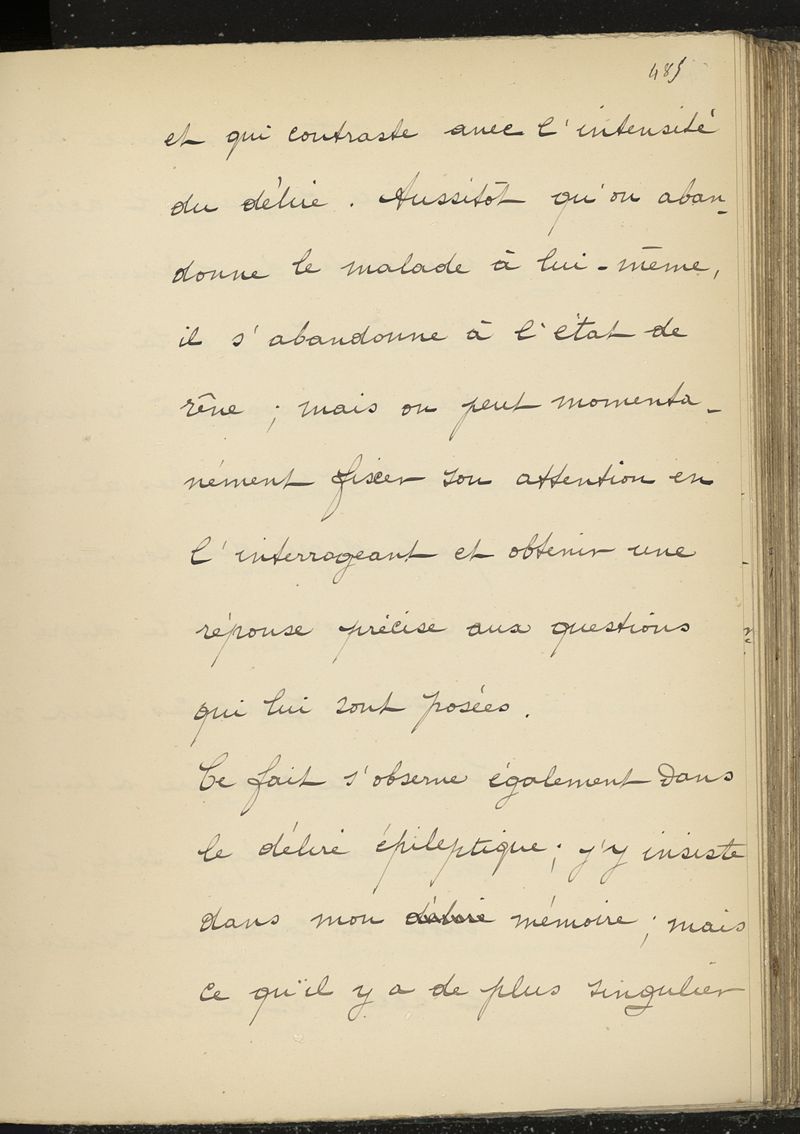 485
et qui contraste avec l'intensité
du délire. Aussitôt qu'on aban-
donne le malade à lui-même,
il s'abandonne à l'état de
rêve ; mais on peut momenta-
nément fixer son attention en
l'interrogeant et obtenir une
réponse précise aux questions
qui lui sont posées.
Ce fait s'observe également dans
le délire épileptique ; j'y insiste
dans mon délire mémoire ; mais
ce qu'il y a de plus singulier